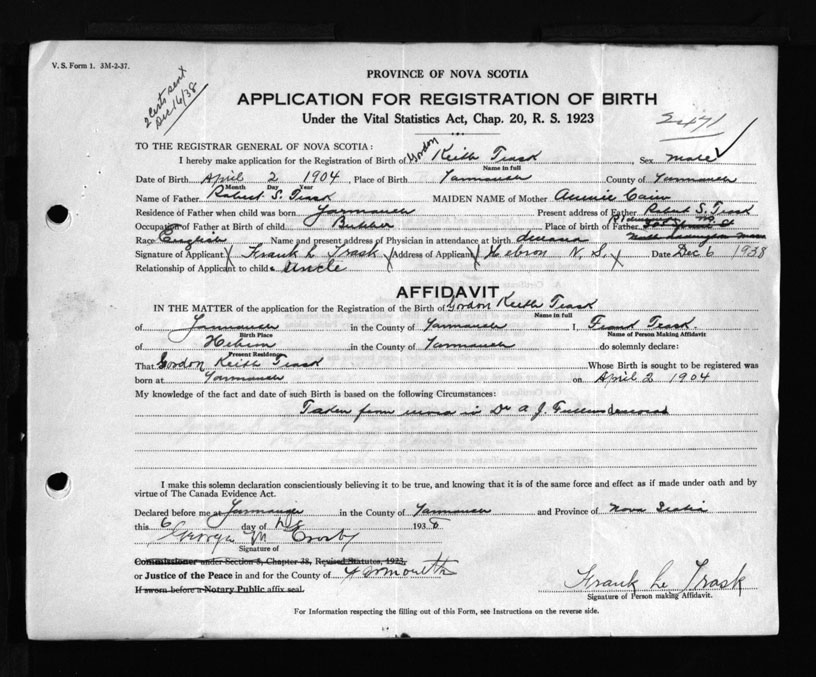 V. S. Form 1. 3M-2-37.
2 Certs sent
Dec 16/38
PROVINCE OF NOVA SCOTIA
APPLICATION FOR REGISTRATION OF BIRTH
Under the Vital Statistics Act, Chap. 20, R. S. 1923
TO THE REGISTRAR GENERAL OF NOVA SCOTIA:
I hereby make application for the Registration of Birth of Gordon Keith Trask Sex male
Name in full
Date of Birth April 2 1904, Place of Birth Yarmouth County of Yarmouth
Month Day Year
Name of Father Robert S. Trask MAIDEN NAME of Mother Annie Cain
Residence of Father when child was born Yarmouth Present address of Father Robert S. Trask
Occupation of Father at Birth of child Butcher Place of birth of Father
Race English Name and present address of Physician in attendance at birth
Signature of Applicant Frank L Trask Address of Applicant Hebron N. S. Date Dec 6 1938
Relationship of Applicant to child Uncle
AFFIDAVIT
IN THE MATTER of the application for the Registration of the Birth of Gordon Keith Trask
Name in full
of Yarmouth in the County of Yarmouth I, Frank Trask
Birth Place Name of Person Making Affidavit
of Hebron in the County of Yarmouth do solemnly declare:
Present Residence
That Gordon Keith Trask Whose Birth is sought to be registered was
born at Yarmouth on April 2 1904
My knowledge of the fact and date of such Birth is based on the following Circumstances:
Taken from Dr A. J. Fuller
I make this solemn declaration conscientiously believing it to be true, and knowing that it is of the same force and effect as if made under oath and by
virtue of The Canada Evidence Act.
Declared before me at Yarmouth in the County of Yarmouth and Province of Nova Scotia
this 6 day of Dec 1938
George M Crosby
Signature of
Commissioner under Section 3, Chapter 38, Revised Statutes, 1923,
or Justice of the Peace in and for the County of Yarmouth
If sworn before a Notary Public affix seal.
Frank L Trask
Signature of Person making Affidavit.
For Information respecting the filling out of this Form, see Instructions on the reverse side.